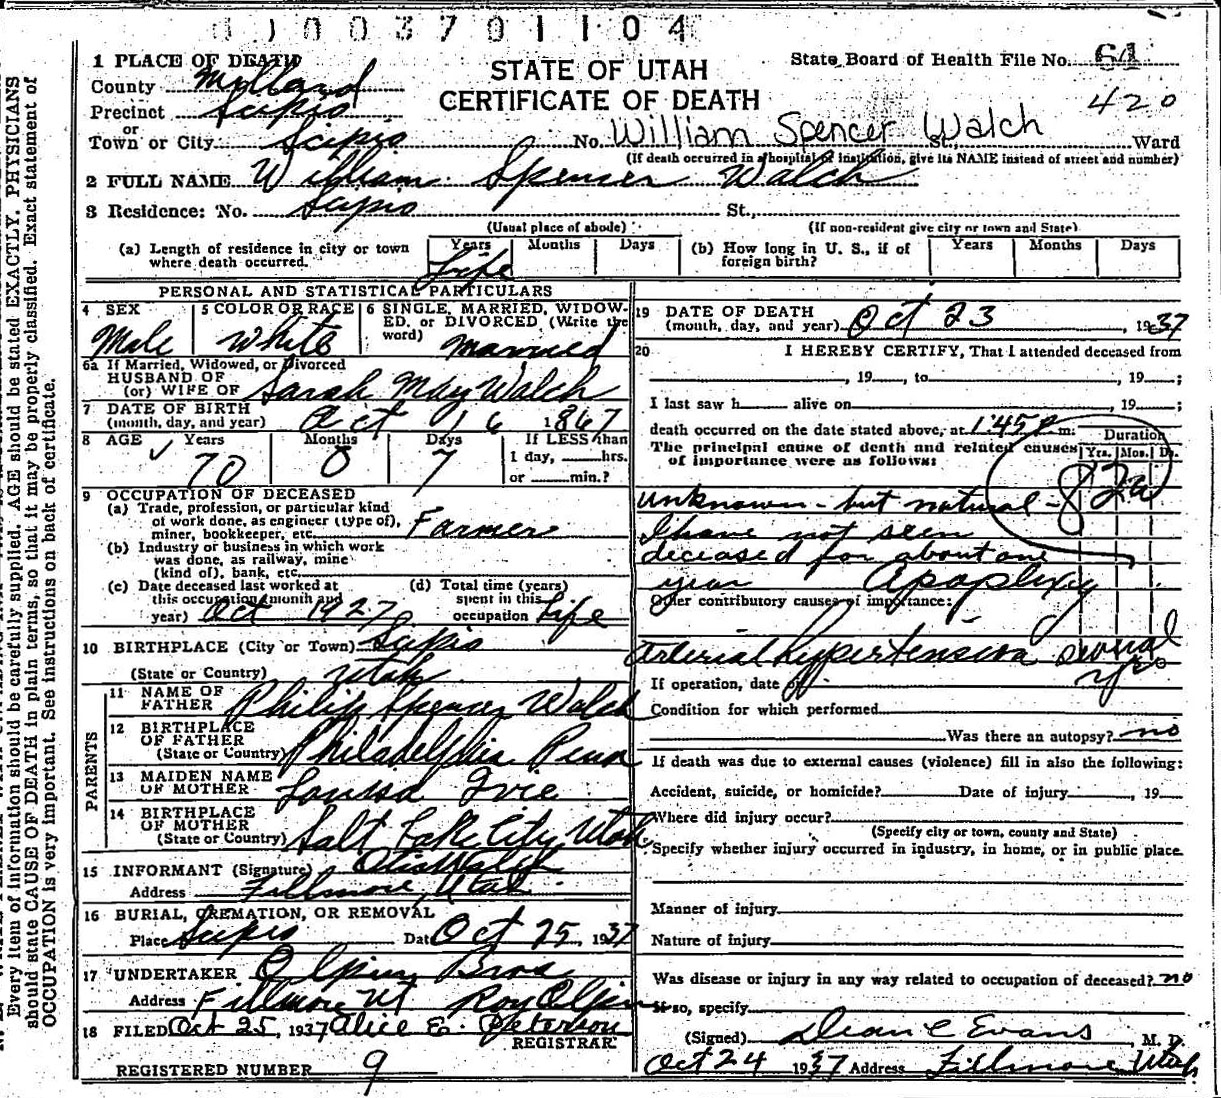 0 1 0 0 3 7 0 1 1 0 4
1 PLACE OF DEATH
STATE OF UTAH
CERTIFICATE OF DEATH
State Board of Health File No. 64
420
County Millard
Precinct Scipio
or
Town or City Scipio No. William Spencer Walch St., Ward
(If death occurred in a hospital or institution, give its NAME instead of street and number)
2 FULL NAME William Spencer Walch
3 Residence: No. Scipio St.,
(Usual place of abode) (If non-resident give city or town and State)
(a) Length of residence in city or town where death occurred. Years Months Days
Life
(b) How long in U. S., if of foreign birth? Years Months Days
PERSONAL AND STATISTICAL PARTICULARS
4 SEX
Male
5 COLOR OR RACE
White
6 SINGLE, MARRIED, WIDOW-
ED, or DIVORCED (Write the
word) Married
6a If Married, Widowed, or Divorced
HUSBAND OF
(or) WIFE OF Sarah May Walch
7 DATE OF BIRTH
(month, day, and year) Oct 16 1867
8 AGE Years Months Days If LESS than
70 0 7 1 day, hrs.
or min.?
9 OCCUPATION OF DECEASED
(a) Trade, profession, or particular kind
of work done, as engineer (type of),
miner, bookkeeper, etc. Farmer
(b) Industry or business in which work
was done, as railway, mine
(kind of), bank, etc.
(c) Date deceased last worked at
this occupation (month and
year) Oct 1927
(d) Total time (years)
spent in this
occupation Life
10 BIRTHPLACE (City or Town) Scipio
(State or Country) Utah
PARENTS
11 NAME OF
FATHER Philip Spencer Walch
12 BIRTHPLACE
OF FATHER
(State or Country) Philadelphia Penn
13 MAIDEN NAME
OF MOTHER Louisa Ivie
14 BIRTHPLACE
OF MOTHER
(State or Country) Salt Lake City, Utah
15 INFORMANT (Signature) Otis Walch
Address Fillmore, Utah
16 BURIAL, CREMATION, OR REMOVAL
Place Scipio Date Oct 25, 1937
17 UNDERTAKER Olpin Bros
Address Fillmore Ut Roy Olpin
18 FILED Oct 25, 1937 Alice E. Peterson
REGISTRAR
REGISTERED NUMBER 9
19 DATE OF DEATH
(month, day, and year) Oct 23, 1937
20 I HEREBY CERTIFY, That I attended deceased from
, 19 , to , 19 ;
I last saw h alive on , 19 ;
death occurred on the date stated above, at 1:45 P m. Duration
The principal cause of death and related causes Yrs. Mos. Ds.
of importance were as follows:
82a
unknown - but natural -
I have not seen
deceased for about one
year Apoplexy
Other contributory causes of importance:
Arterial hypertension several
yrs
If operation, date of
Condition for which performed
Was there an autopsy? no
If death was due to external causes (violence) fill in also the following:
Accident, suicide, or homicide? Date of injury , 19
Where did injury occur?
(Specify city or town, county and State)
Specify whether injury occurred in industry, in home, or in public place.
Manner of injury
Nature of injury
Was disease or injury in any way related to occupation of deceased? no
If so, specify
(Signed) Dean C Evans, M. D.
Oct 24 1937 Address Fillmore Utah
Every item of information should be carefully supplied. AGE should be stated EXACTLY. PHYSICIANS
should state CAUSE OF DEATH in plain terms, so that it may be properly classified. Exact statement of
OCCUPATION is very important. See instructions on back of certificate.